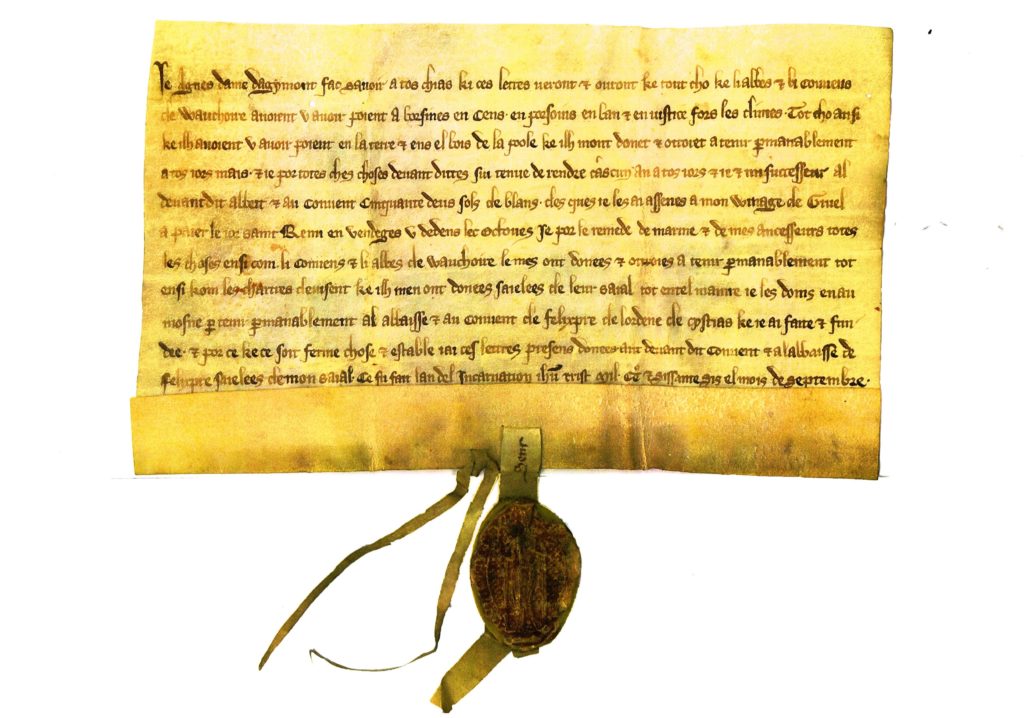 Je Agnes dame dagymont fac savoir a tos chias ki ces lettres veront & oiront ke tout cho ke li abbes & li Couuens
de Wauchoire auoient v auoir poient a bresines en Cens en parsouns en ban & en iustice fors les dimes Tot cho ausi
ke ilh auoient v auoir poient en la terre & ens el bois de la foole ke ilh mont donet & otroiet a tenir pmanablement
a tos iors mais & ie por totes ches choses deuant dittes sui tenue de rendre cascun an a tos iors & ie & mi successeur al
deuant dit abbeit & au Conuent Cinquante deus sols de blans des ques ie les ai assenes a mon Winage de Giuel
a paier le ior saint Remi en vendeges v dedens les Octoues Je por le remede de marme & de mes ancesseurs totes
les choses ensi com li Conuens & li abbes de Wauchoire le mes ont donees & otroies a tenir pmanablement tot
ensi kom les chartres deuisent ke ilh men ont donees saielees de leur saial tot en tel maniere ie les doins en au
mosne p tenir pmanablement al abbaisse & au Conuent de felixpre de lordene de Cystias ke ie ai faite & fun
dee & por ce ke ce soit ferme chose & estable iai ces lettres presens donees au deuant dit Conuent & a labbaisse de
Felixpre saielees de mon saial Ce fu fait lan del Incarnation ihu crist Mil CC & sissante sis el mois de septembre